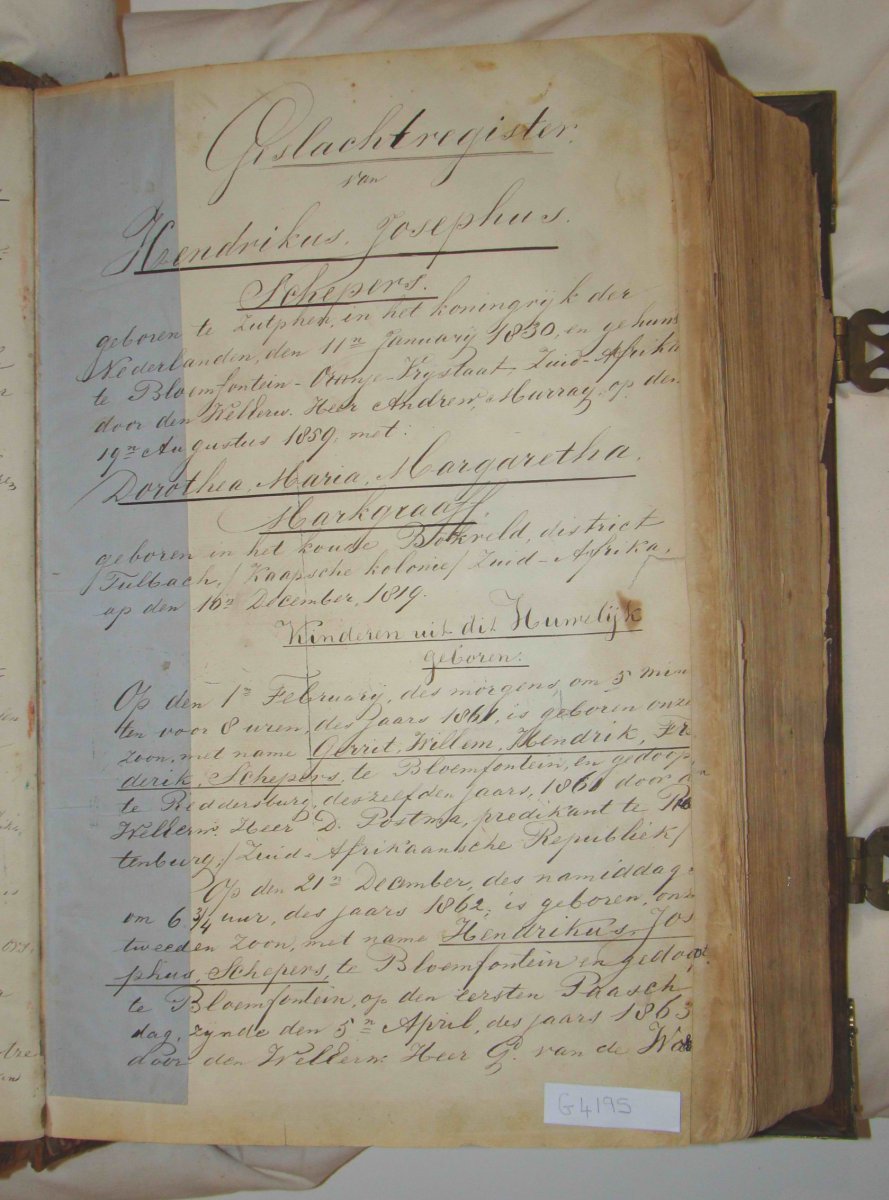 Geslachtregister.
van
Hendrikus. Josephus.
Schepers.
geboren te Zutphen, in het koningrijk der
Nederlanden, den 11n Januarij 1830, en gehuwd
te Bloemfontein - Oranje-Vrystaat, Zuid-Afrika
door den WelEerw. Heer Andrew, Murray, op den
19n Augustus 1859, met:
Dorothea, Maria, Margaretha.
Markgraaff.
geboren in het koude Bokveld, district
Tulbach, / Kaapsche kolonie / Zuid-Afrika,
op den 16n December, 1819.
Kinderen uit dit Huwelijk
geboren:
Op den 1n February, des morgens, om 5 minu
ten voor 8 uren, des jaars 1861, is geboren onze
zoon, met name Gerrit, Willem, Hendrik, Fre
derik, Schepers, te Bloemfontein, en gedoopt
te Reddersburg, deszelfden jaars, 1861 door den
WelEerw. Heer D. Postma, predikant te Rus
tenburg, / Zuid-Afrikaansche Republiek /
Op den 21n December, des namiddags
om 6 3/4 uur, des jaars 1862, is geboren, onze
tweeden zoon, met name Hendrikus, Jose
phus, Schepers, te Bloemfontein en gedoopt
te Bloemfontein, op den eersten Paasch
dag, zynde den 5n April, des jaars 1863
door den WelEerw. Heer G. van de Wal
G4195